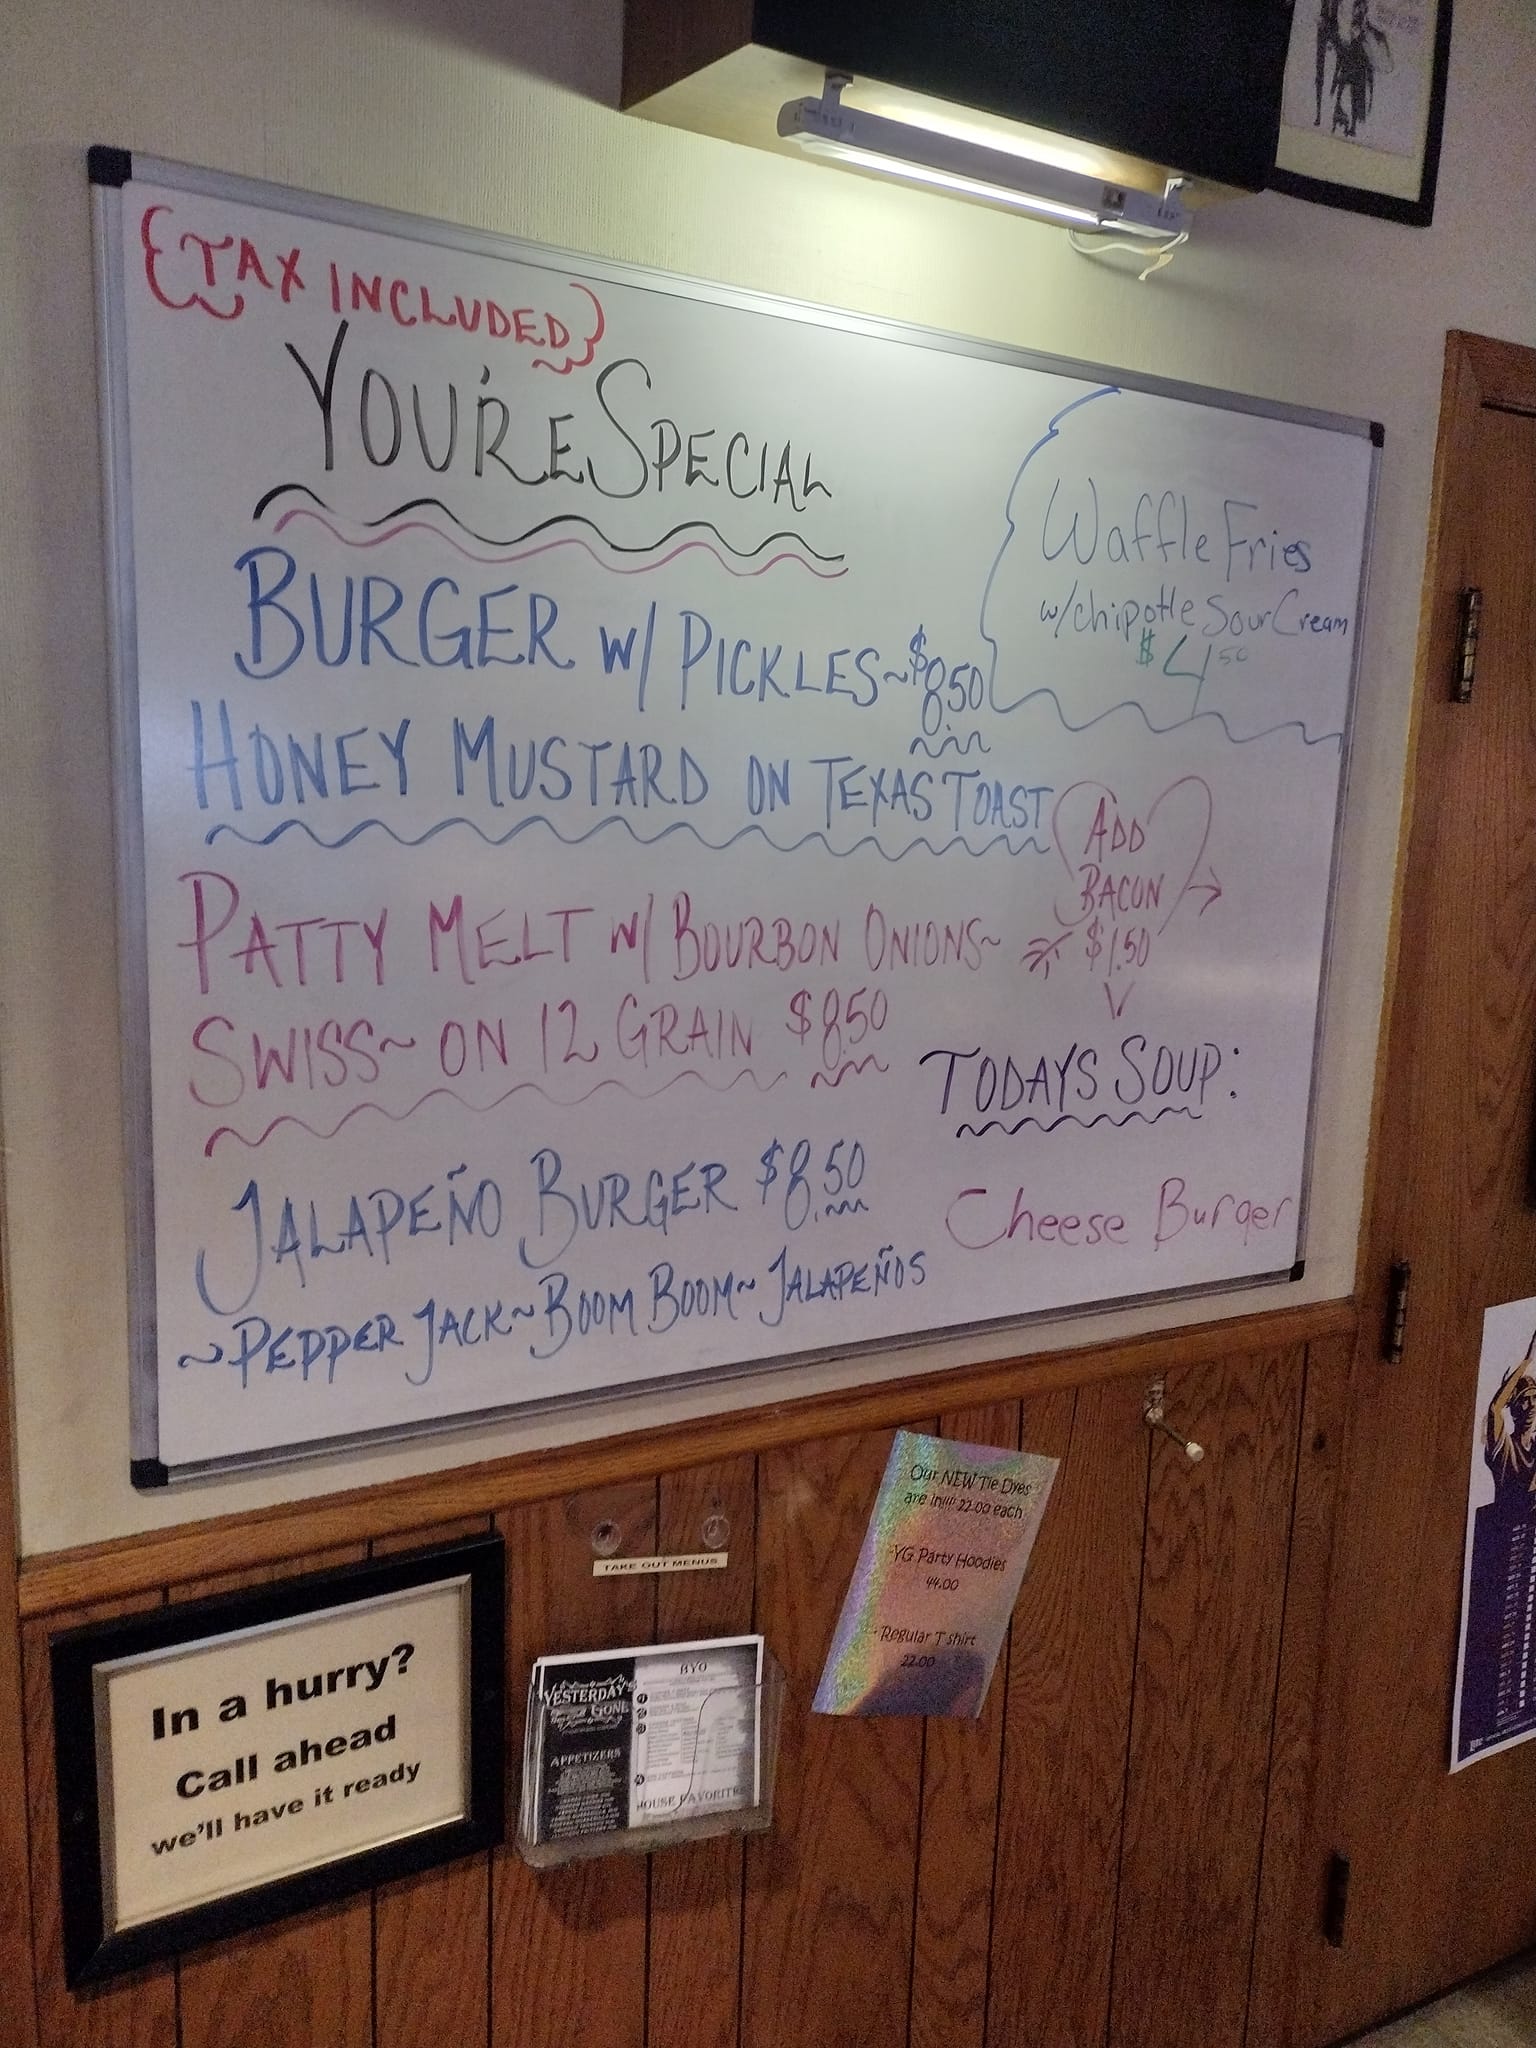 {TAX INCLUDED}
YOU'RE SPECIAL
BURGER W/ PICKLES~$8.50
HONEY MUSTARD ON TEXAS TOAST
PATTY MELT W/ BOURBON ONIONS~
SWISS~ ON 12 GRAIN $8.50
JALAPEÑO BURGER $8.50
~PEPPER JACK~BOOM BOOM~JALAPEÑOS
Waffle Fries
w/chipotle Sour Cream
$4.50
ADD
BACON
$1.50
TODAYS SOUP:
Cheese Burger
In a hurry?
Call ahead
we'll have it ready
TAKE OUT MENUS
YESTERDAY'S
GONE
APPETIZERS
BYO
HOUSE FAVORITES
Our NEW Tie Dyes
are in!!!! 22.00 each
-YG Party Hoodies
44.00
-Regular T shirt
22.00